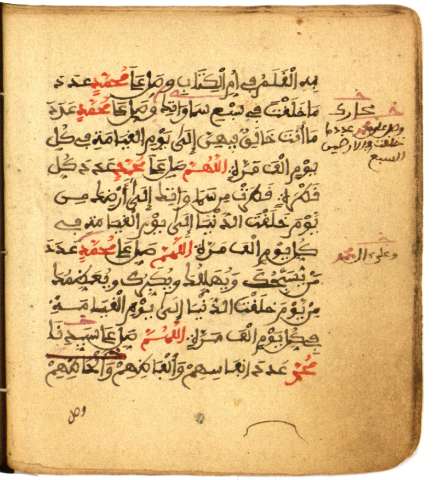 به القلم في أم الكتاب وصل على محمد عدد
ما خلقت في سبع سماواتك وصل على محمد عدد
ما أنت خالق فيهن إلى يوم القيامة في كل
يوم ألف مرة اللهم صل على محمد عدد كل
قطرة قطرت من سماواتك إلى أرضك من
يوم خلقت الدنيا إلى يوم القيامة في
كل يوم ألف مرة اللهم صل على محمد عدد
من يسبحك ويهللك ويكبرك ويعظمك
من يوم خلقت الدنيا إلى يوم القيامة
في كل يوم ألف مرة اللهم صل على سيدنا
محمد عدد انفاسهم وألفاظهم وألحاظهم
وصل
عدد ما
خلقت في الارضين
السبع
وعلى ال